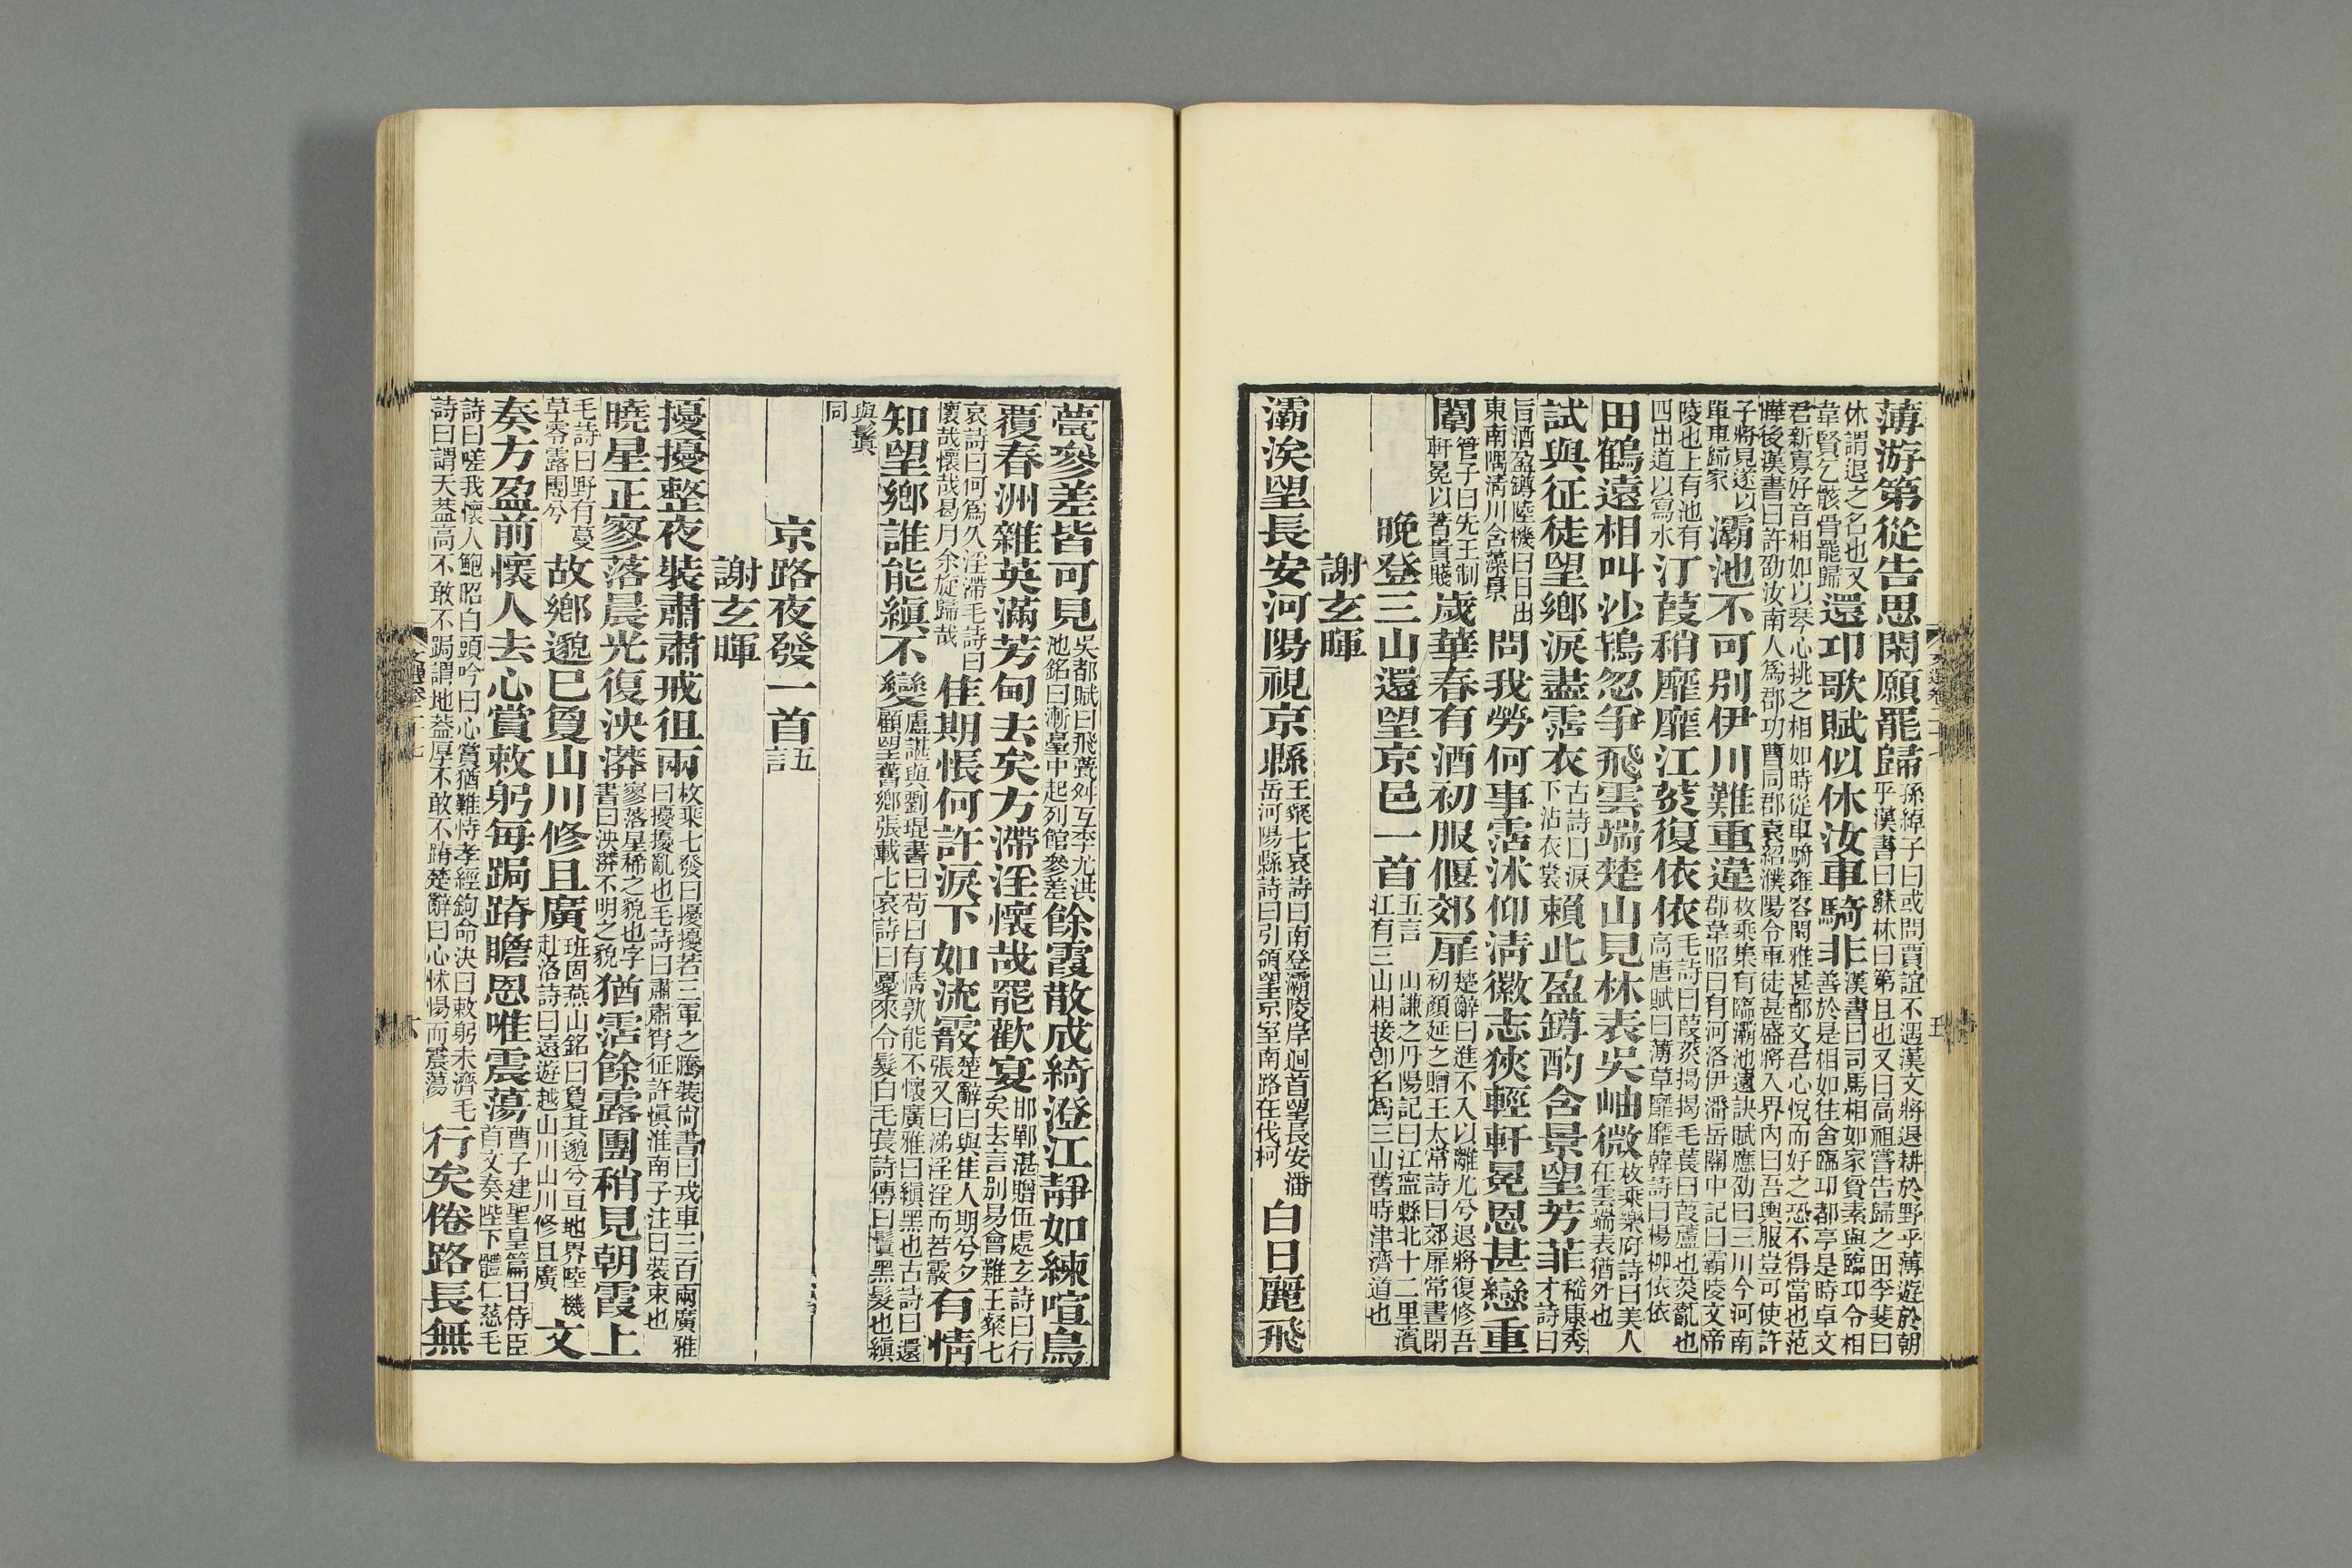 薄游第從告思閑願罷歸孫綽子曰或問賈誼不遇漢文將退耕於野乎薄遊於朝乎漢書曰蘇林曰第且也又曰高祖嘗告歸之田李斐曰
休謂退之名也又韋賢乞骸骨罷歸還卭歌賦似休汝車騎非漢書曰司馬相如家貧素與臨卭令相善於是相如往舍臨卭都亭是時卓文
君新寡好音相如以琴心挑之相如時從車騎雍容閑雅甚都文君心悅而好之恐不得當也范曄後漢書曰許劭汝南人爲郡功曹同郡袁紹濮陽令車徒甚盛將入界內曰吾輿服豈可使許
子將見遂以單車歸家灞池不可別伊川難重違枚乘集有臨灞池遠訣賦應劭曰三川今河南郡韋昭曰有河洛伊潘岳關中記曰霸陵文帝
陵也上有池有四出道以寫水汀葭稍靡靡江菼復依依毛詩曰葭菼揭揭毛萇曰葭蘆也菼薍也高唐賦曰薄草靡靡韓詩曰楊柳依依
田鶴遠相叫沙鴇忽爭飛雲端楚山見林表吳岫微枚乘樂府詩曰美人在雲端表猶外也
試與征徒望鄉淚盡霑衣古詩曰淚下沾衣裳賴此盈罇酌含景望芳菲嵇康秀才詩曰
旨酒盈罇陸機曰日出東南隅清川含藻景問我勞何事霑沐仰清徽志狹輕軒冕恩甚戀重
闈管子曰先王制軒冕以著貴賤歲華春有酒初服偃郊扉楚辭曰進不入以離尤兮退將復修吾初顏延之贈王太常詩曰郊扉常晝閉
晚登三山還望京邑一首五言 山謙之丹陽記曰江寧縣北十二里濱江有三山相接卽名爲三山舊時津濟道也
謝玄暉
灞涘望長安河陽視京縣王粲七哀詩曰南登灞陵岸迴首望長安潘岳河陽縣詩曰引領望京室南路在伐柯白日麗飛
甍參差皆可見吳都賦曰飛甍舛互李尤洪池銘曰漸臺中起列館參差餘霞散成綺澄江靜如練喧鳥
覆春洲雜英滿芳甸去矣方滯淫懷哉罷歡宴邯鄲湛贈伍處玄詩曰行矣去言別易會難王粲七
哀詩曰何爲久淫滯毛詩曰懷哉懷哉曷月余旋歸哉佳期悵何許淚下如流霰楚辭曰與佳人期兮夕張又曰涕淫淫而若霰有情
知望鄉誰能縝不變盧諶與劉琨書曰苟曰有情孰能不懷廣雅曰縝黑也古詩曰還顧望舊鄉張載七哀詩曰憂來令髮白毛萇詩傳曰鬒黑髮也縝
與鬒同
京路夜發一首五言
謝玄暉
擾擾整夜裝肅肅戒徂兩枚乘七發曰擾擾若三軍之騰裝尚書曰戎車三百兩廣雅曰擾擾亂也毛詩曰肅肅宵征許愼淮南子注曰裝束也
曉星正寥落晨光復泱漭寥落星稀之貌也字書曰泱漭不明之貌猶霑餘露團稍見朝霞上
毛詩曰野有蔓草零露團兮故鄉邈已敻山川修且廣班固燕山銘曰敻其邈兮亘地界陸機赴洛詩曰遠遊越山川山川修且廣文
奏方盈前懷人去心賞敕躬每跼蹐瞻恩唯震蕩曹子建聖皇篇曰侍臣首文奏陛下體仁慈毛
詩曰嗟我懷人鮑昭白頭吟曰心賞猶難恃孝經鉤命決曰敕躬未濟毛詩曰謂天蓋高不敢不跼謂地蓋厚不敢不蹐楚辭曰心怵惕而震蕩行矣倦路長無